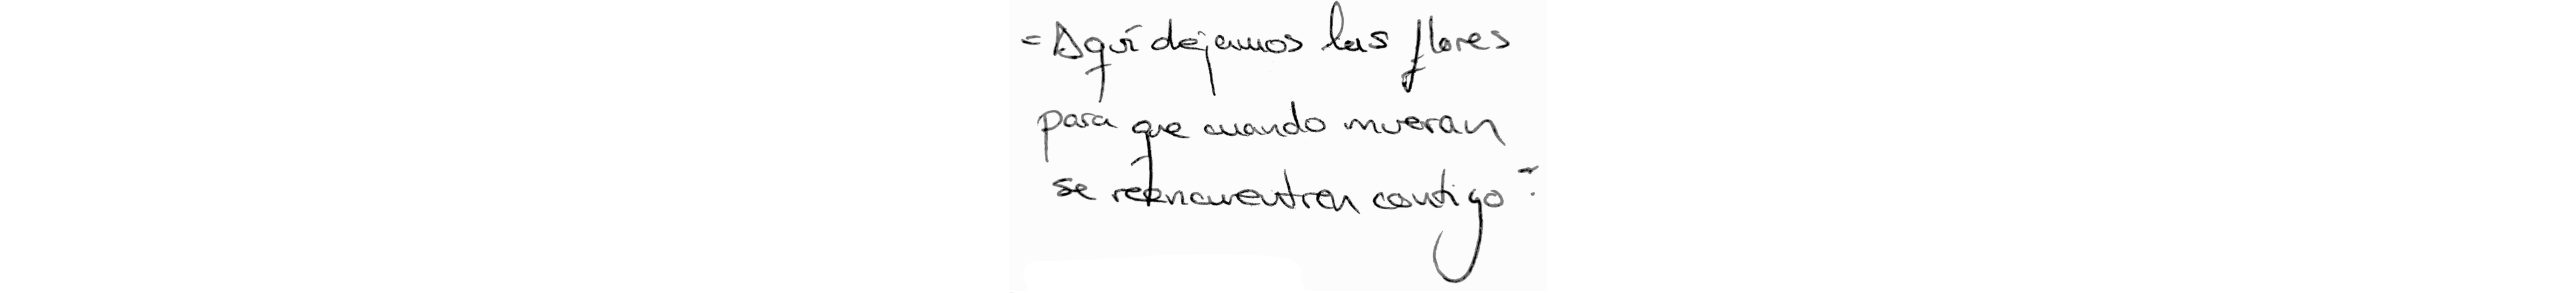 "Aquí dejamos las flores
para que cuando mueran
se reencuentren contigo".